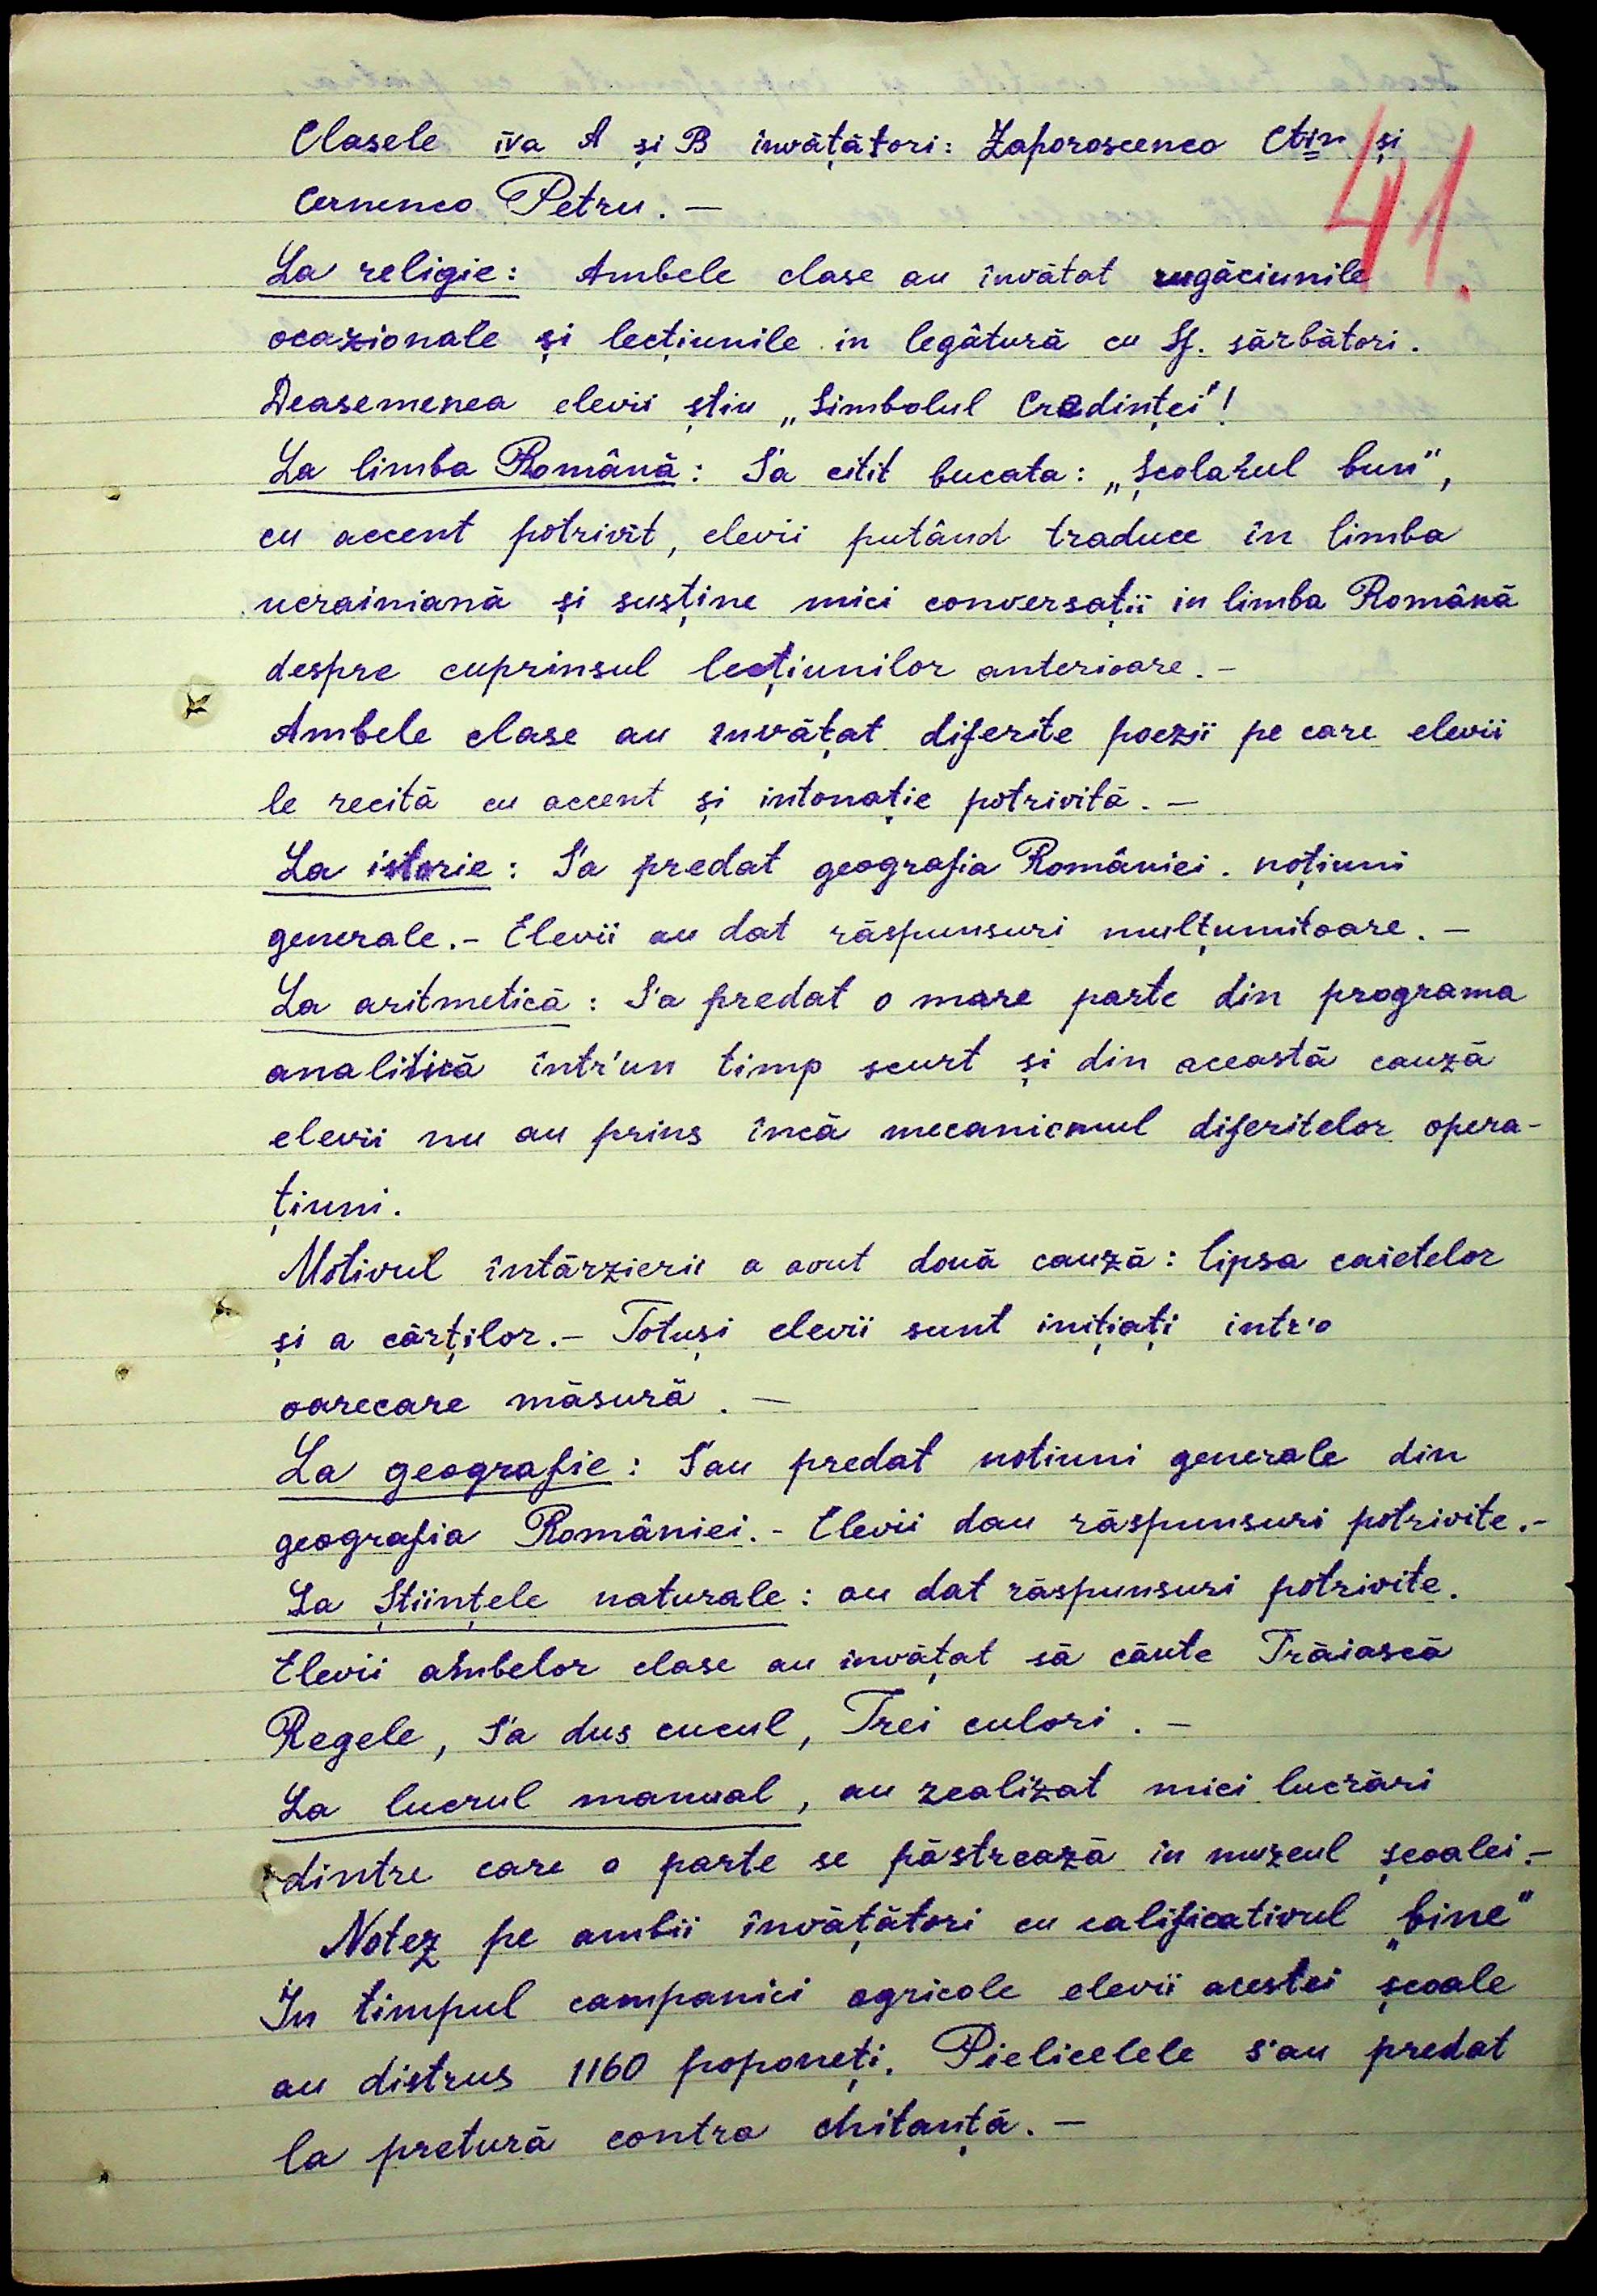 Clasele IVa A și B învățători: Zaporoscenco Ctin și
Cernenco Petru. —
41.
La religie: Ambele clase au învătat rugăciunile
ocazionale și lecțiunile in legâtură cu Sf. sărbători.
Deasemenea elevii știu „Simbolul Credinței"!
La limba Română: S'a citit bucata: „Școlarul bun",
cu accent potrivit, elevii putând traduce în limba
ucrainiană și susține mici conversații in limba Română
despre cuprinsul lecțiunilor anterioare. -
Ambele clase au învățat diferite poezii pe care elevii
le recită cu accent și intonație potrivită. —
La istorie: S'a predat geografia României. noțiuni
generale. - Elevii au dat răspunsuri mulțumitoare. —
La aritmetică: S'a predat o mare parte din programa
analitică într'un timp scurt și din această cauză
elevii nu au prins încă mecanicmul diferitelor opera-
țiuni.
Motivul întărzierii a avut două cauză: lipsa caietelor
și a cărților. - Totuși elevii sunt inițiați intr'o
oarecare măsură. —
La geografie: S'au predat notiuni generale din
geografia României. - Elevii dau răspunsuri potrivite. -
La Științele naturale: au dat răspunsuri potrivite.
Elevii ambelor clase au invățat să cănte Trăiască
Regele, S'a dus cucul, Trei culori. —
La lucrul manual, au realizat mici lucrări
dintre care o parte se păstrează in muzeul școalei. -
Notez pe ambii învățători cu calificativul „bine"
In timpul campaniei agricole elevii acestei școale
au distrus 1160 poponeți. Pielicelele s'au predat
la pretură contra chitanță. —